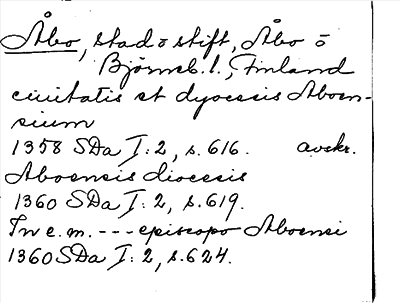 Åbo, stad o stift, Åbo o
Björneb. l., Finland
ciuitatis et dyocesis Aboen-
sium
1358 SDa I: 2, s. 616. avskr.
Aboensis diocesis
1360 SDa I: 2, s. 619.
In e. m. --- episcopo Aboensi
1360 SDa I: 2, s. 624.